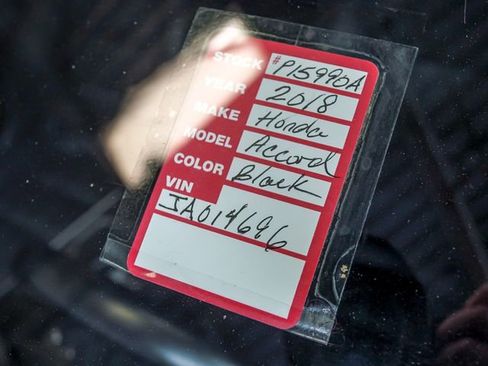 STOCK # P15990A
YEAR 2018
MAKE Honda
MODEL Accord
COLOR Black
VIN
JA014696